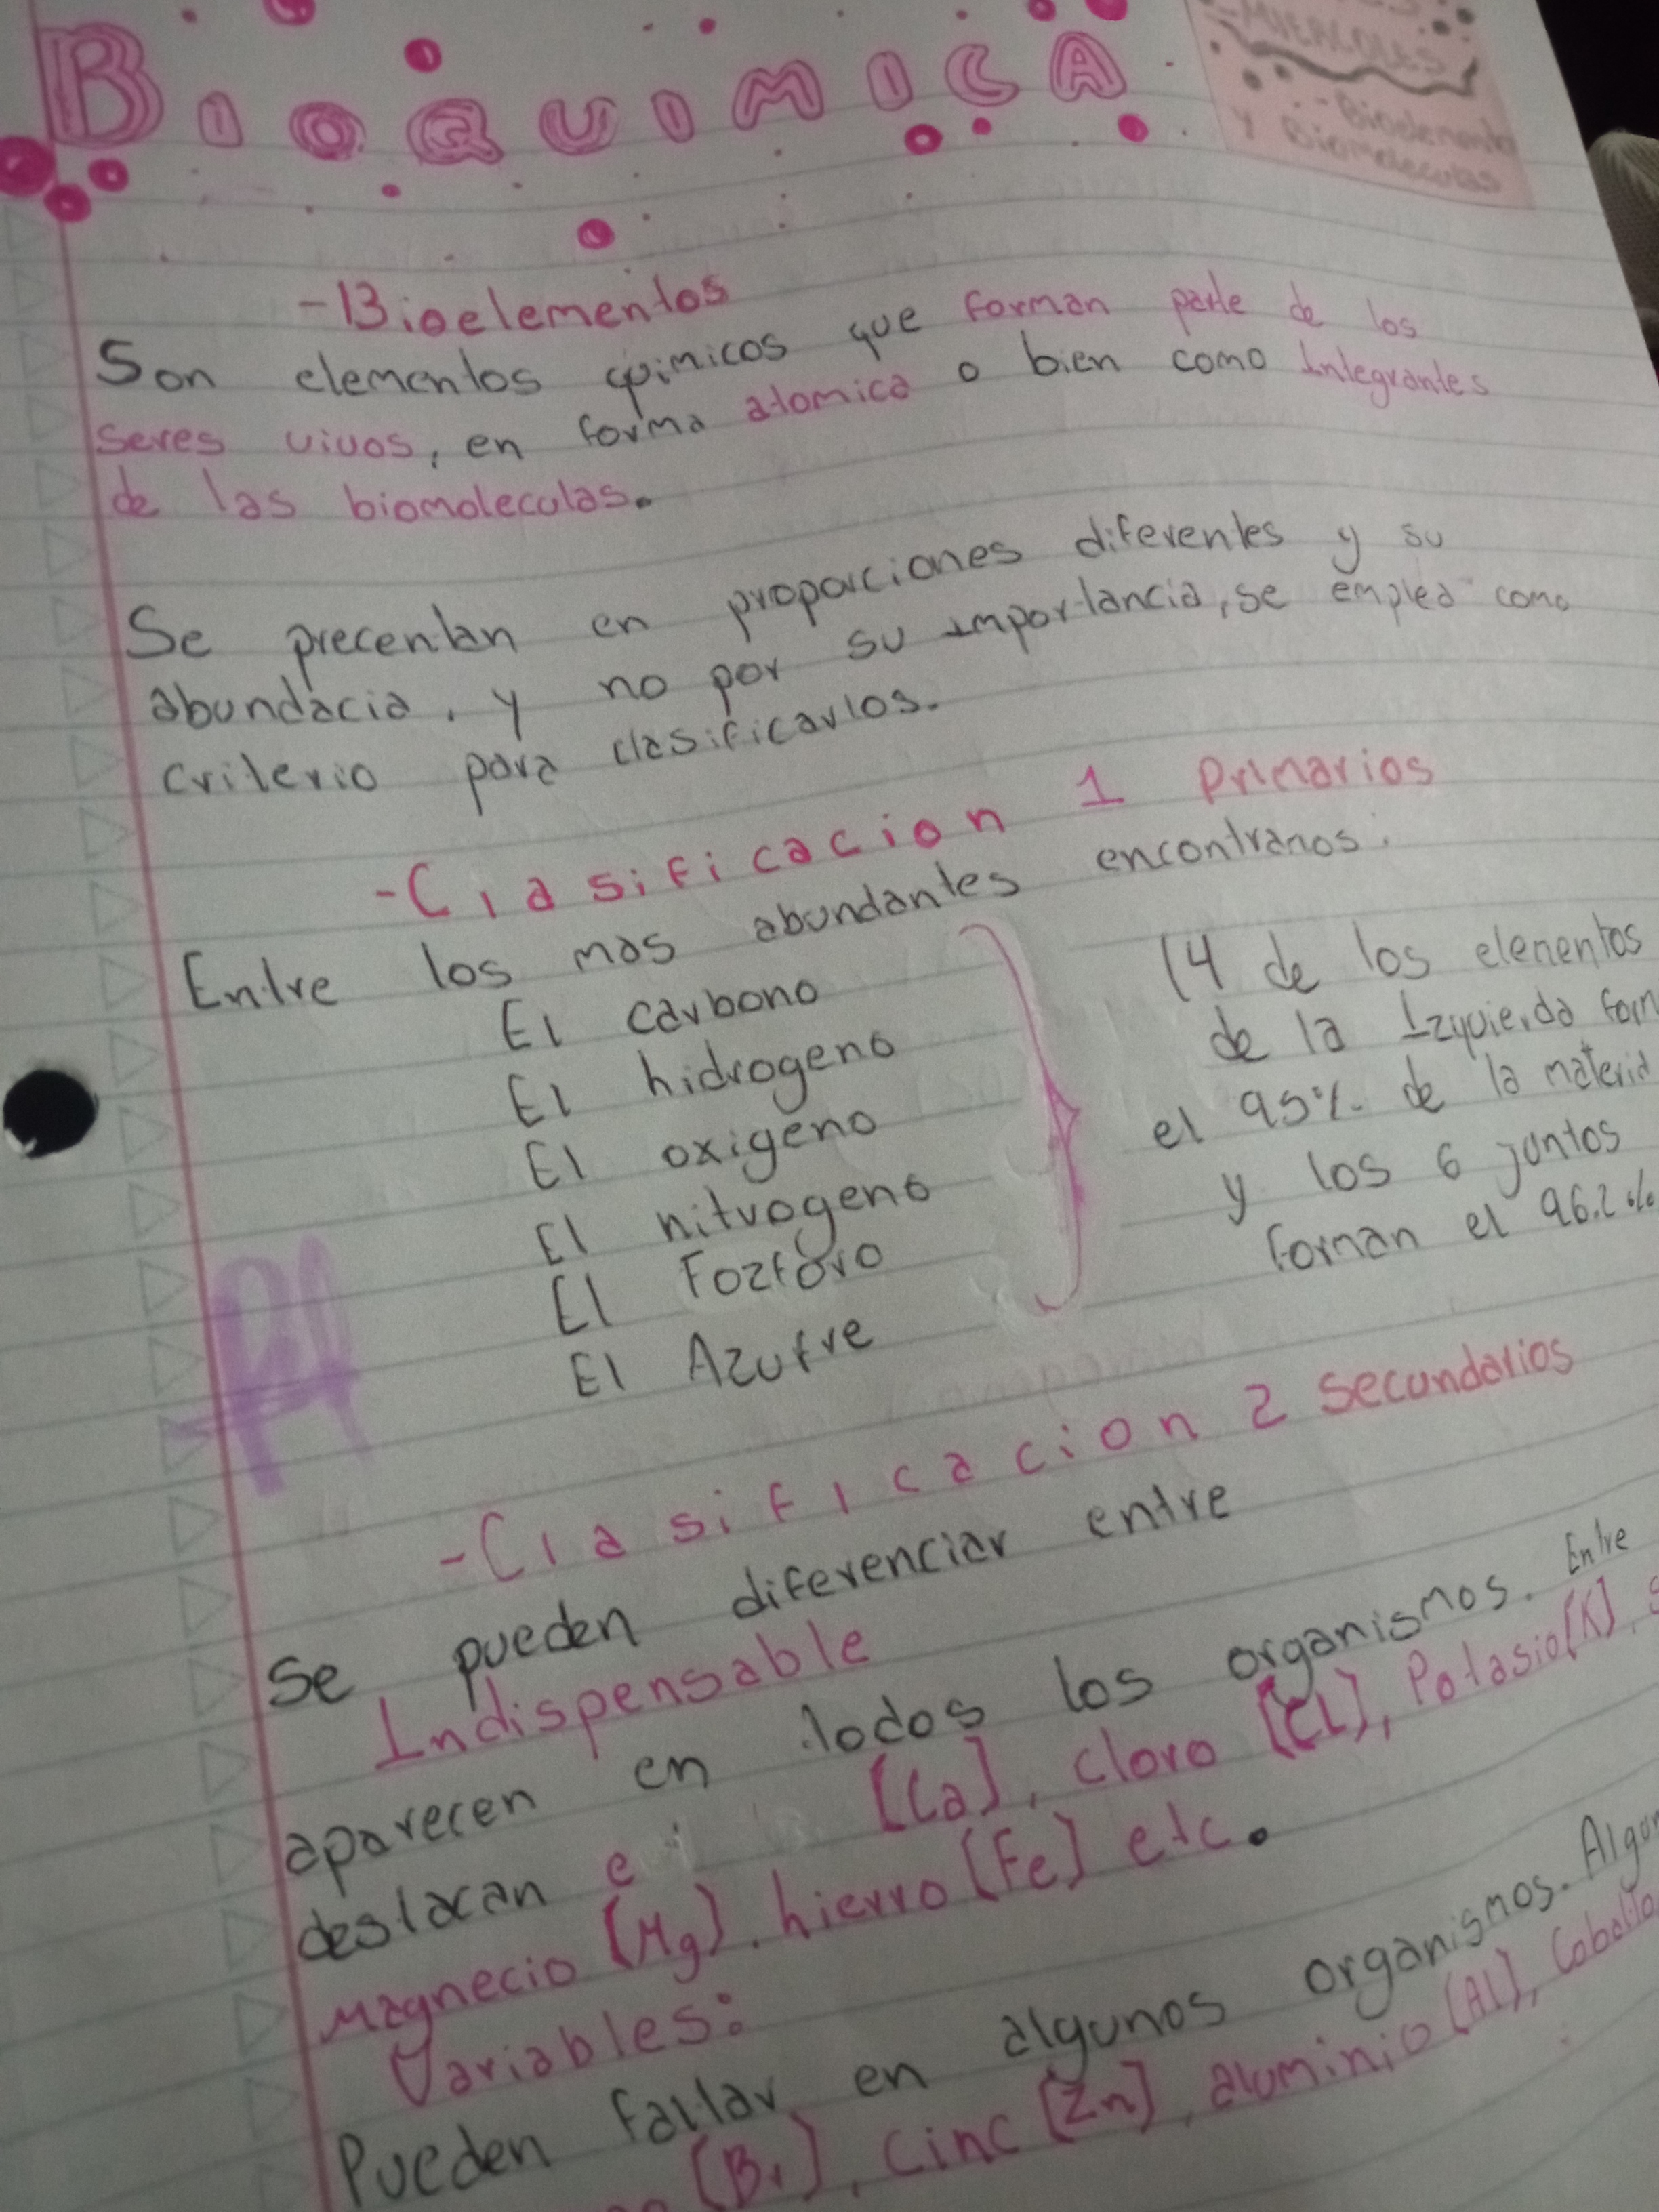 BIOQUIMICA
MIERCOLES
- Bioelementos
y Biomoleculas
- Bioelementos
Son elementos quimicos que forman parte de los
seres vivos, en forma atomica o bien como Integrantes
de las biomoleculas.
Se precentan en proporciones diferentes y su
abundacia, y no por su importancia, se emplea como
criterio para clasificarlos.
- Clasificacion 1 Primarios
Entre los mas abundantes encontramos:
El carbono
El hidrogeno
El oxigeno
El nitrogeno
El Fozforo
El Azufre
(4 de los elementos
de la Izquierda form
el 95% de la materia
y los 6 juntos
forman el 96.2%
- Clasificacion 2 secundarios
Se pueden diferenciar entre
Indispensable
aparecen en todos los organismos. Entre
destacan e [Ca], cloro [CL], Potasio[K], s
Magnecio [Mg], hierro [Fe] etc.
Variables:
Pueden faltar en algunos organismos. Algun
[Br], cinc [Zn], aluminio [Al], Cobalto